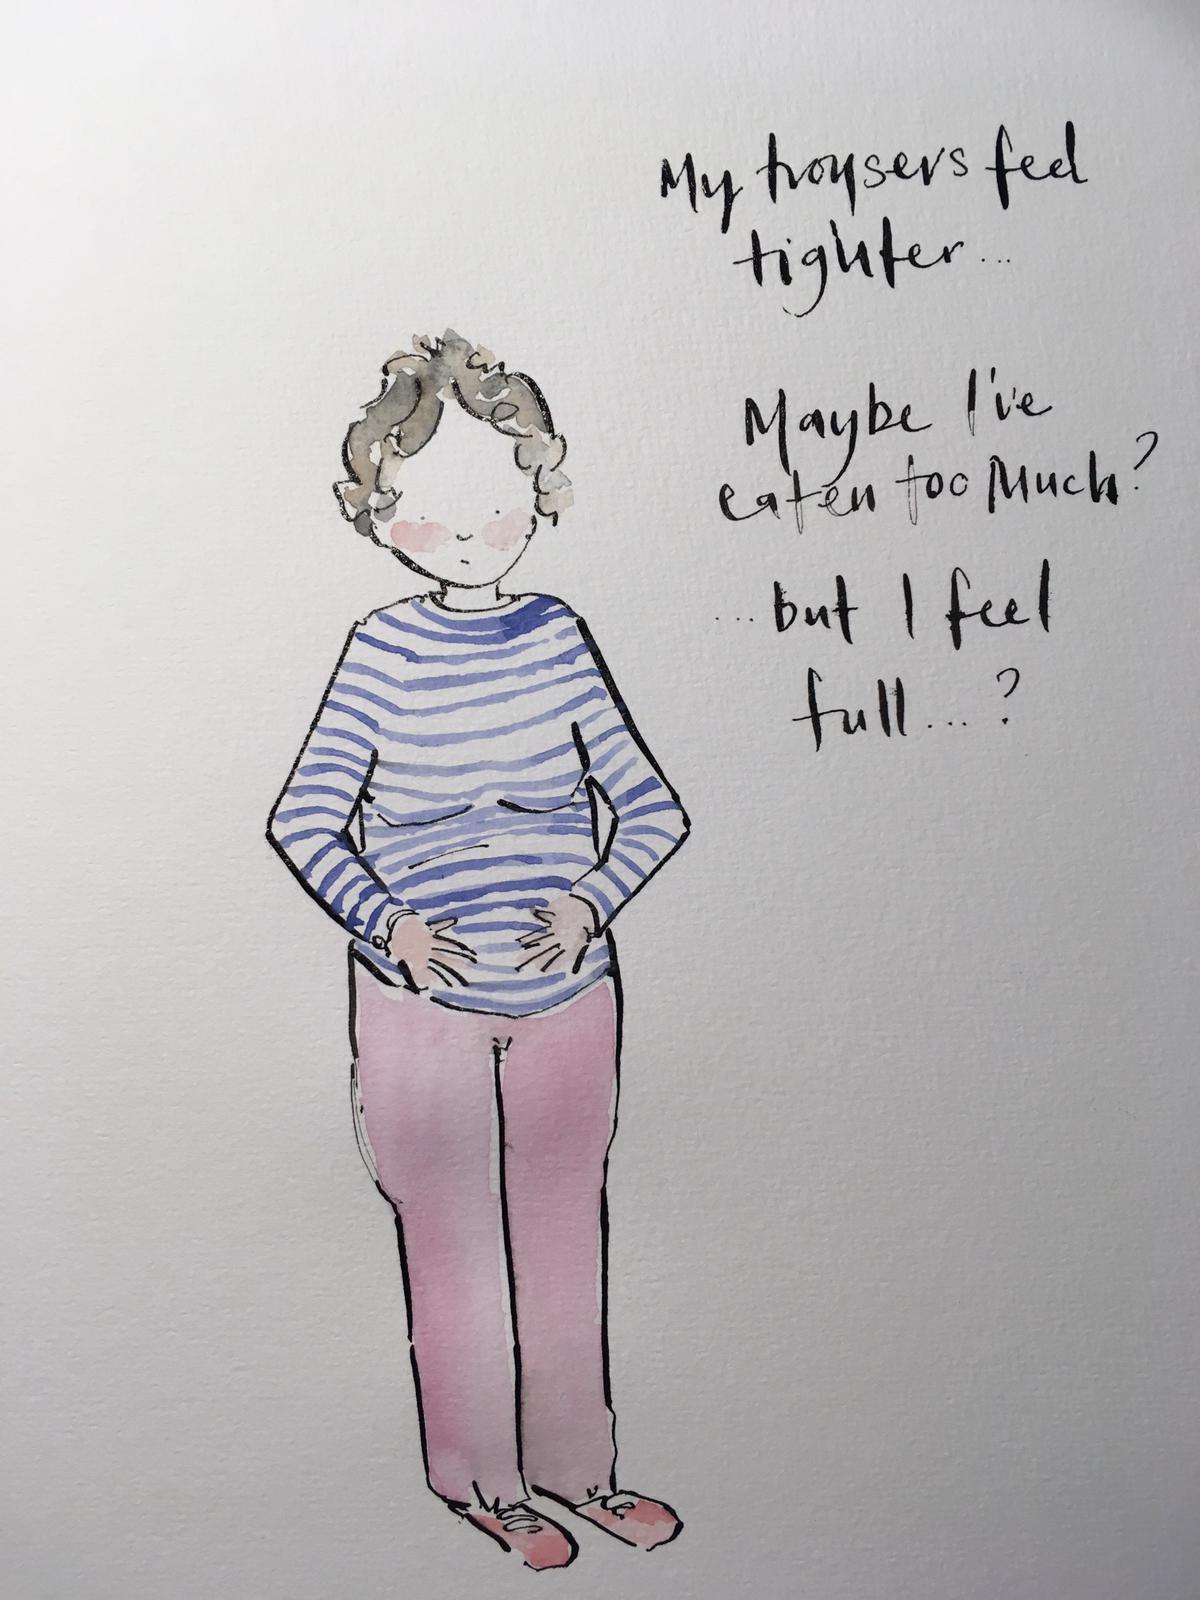 My trousers feel
tighter...
Maybe I've
eaten too Much?
...but I feel
full...?